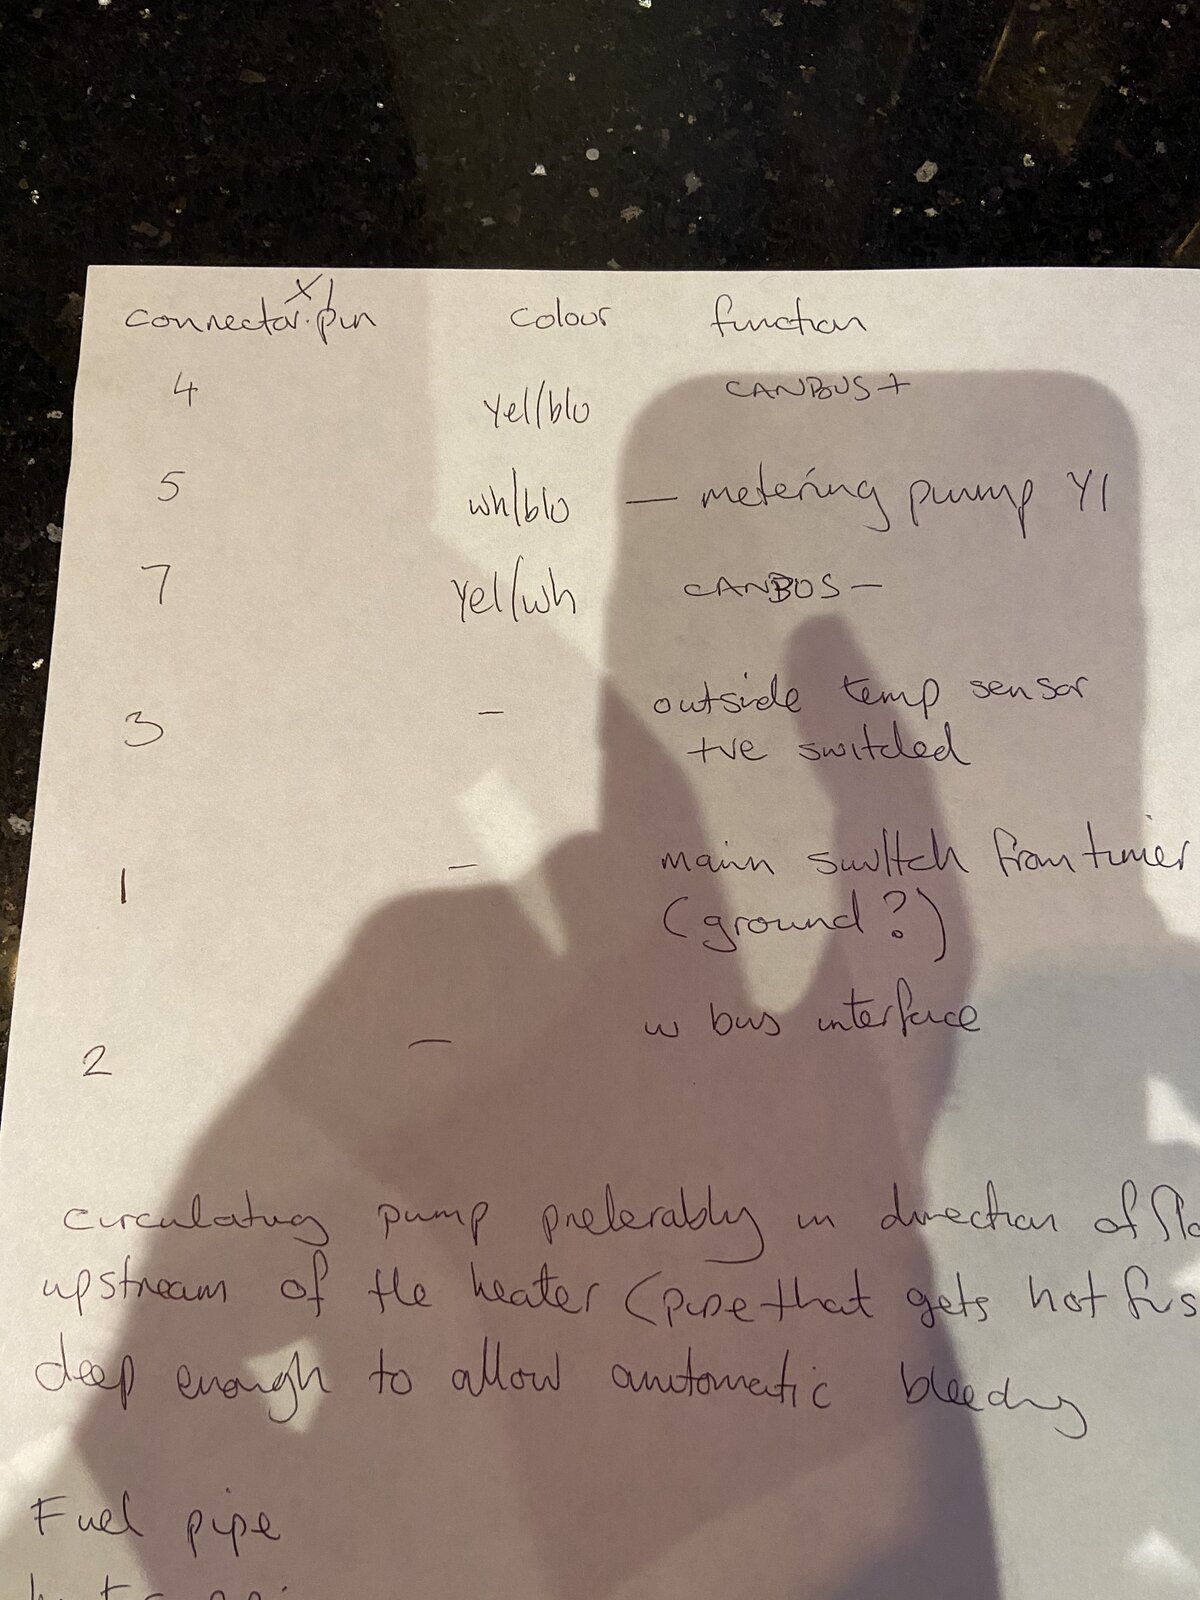 X1
connector.pin colour function
4 yel/blu CANBUS+
5 wh/blu — metering pump Y1
7 yel/wh CANBUS −
3 – outside temp sensor
+ve switched
1 – main switch from timer
(ground?)
2 – w bus interface
circulating pump preferably in direction of flo
upstream of the heater (pipe that gets hot
deep enough to allow automatic bleeding
Fuel pipe